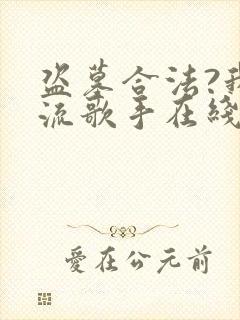 盗墓合法?我
流歌手在綫
愛在公元前